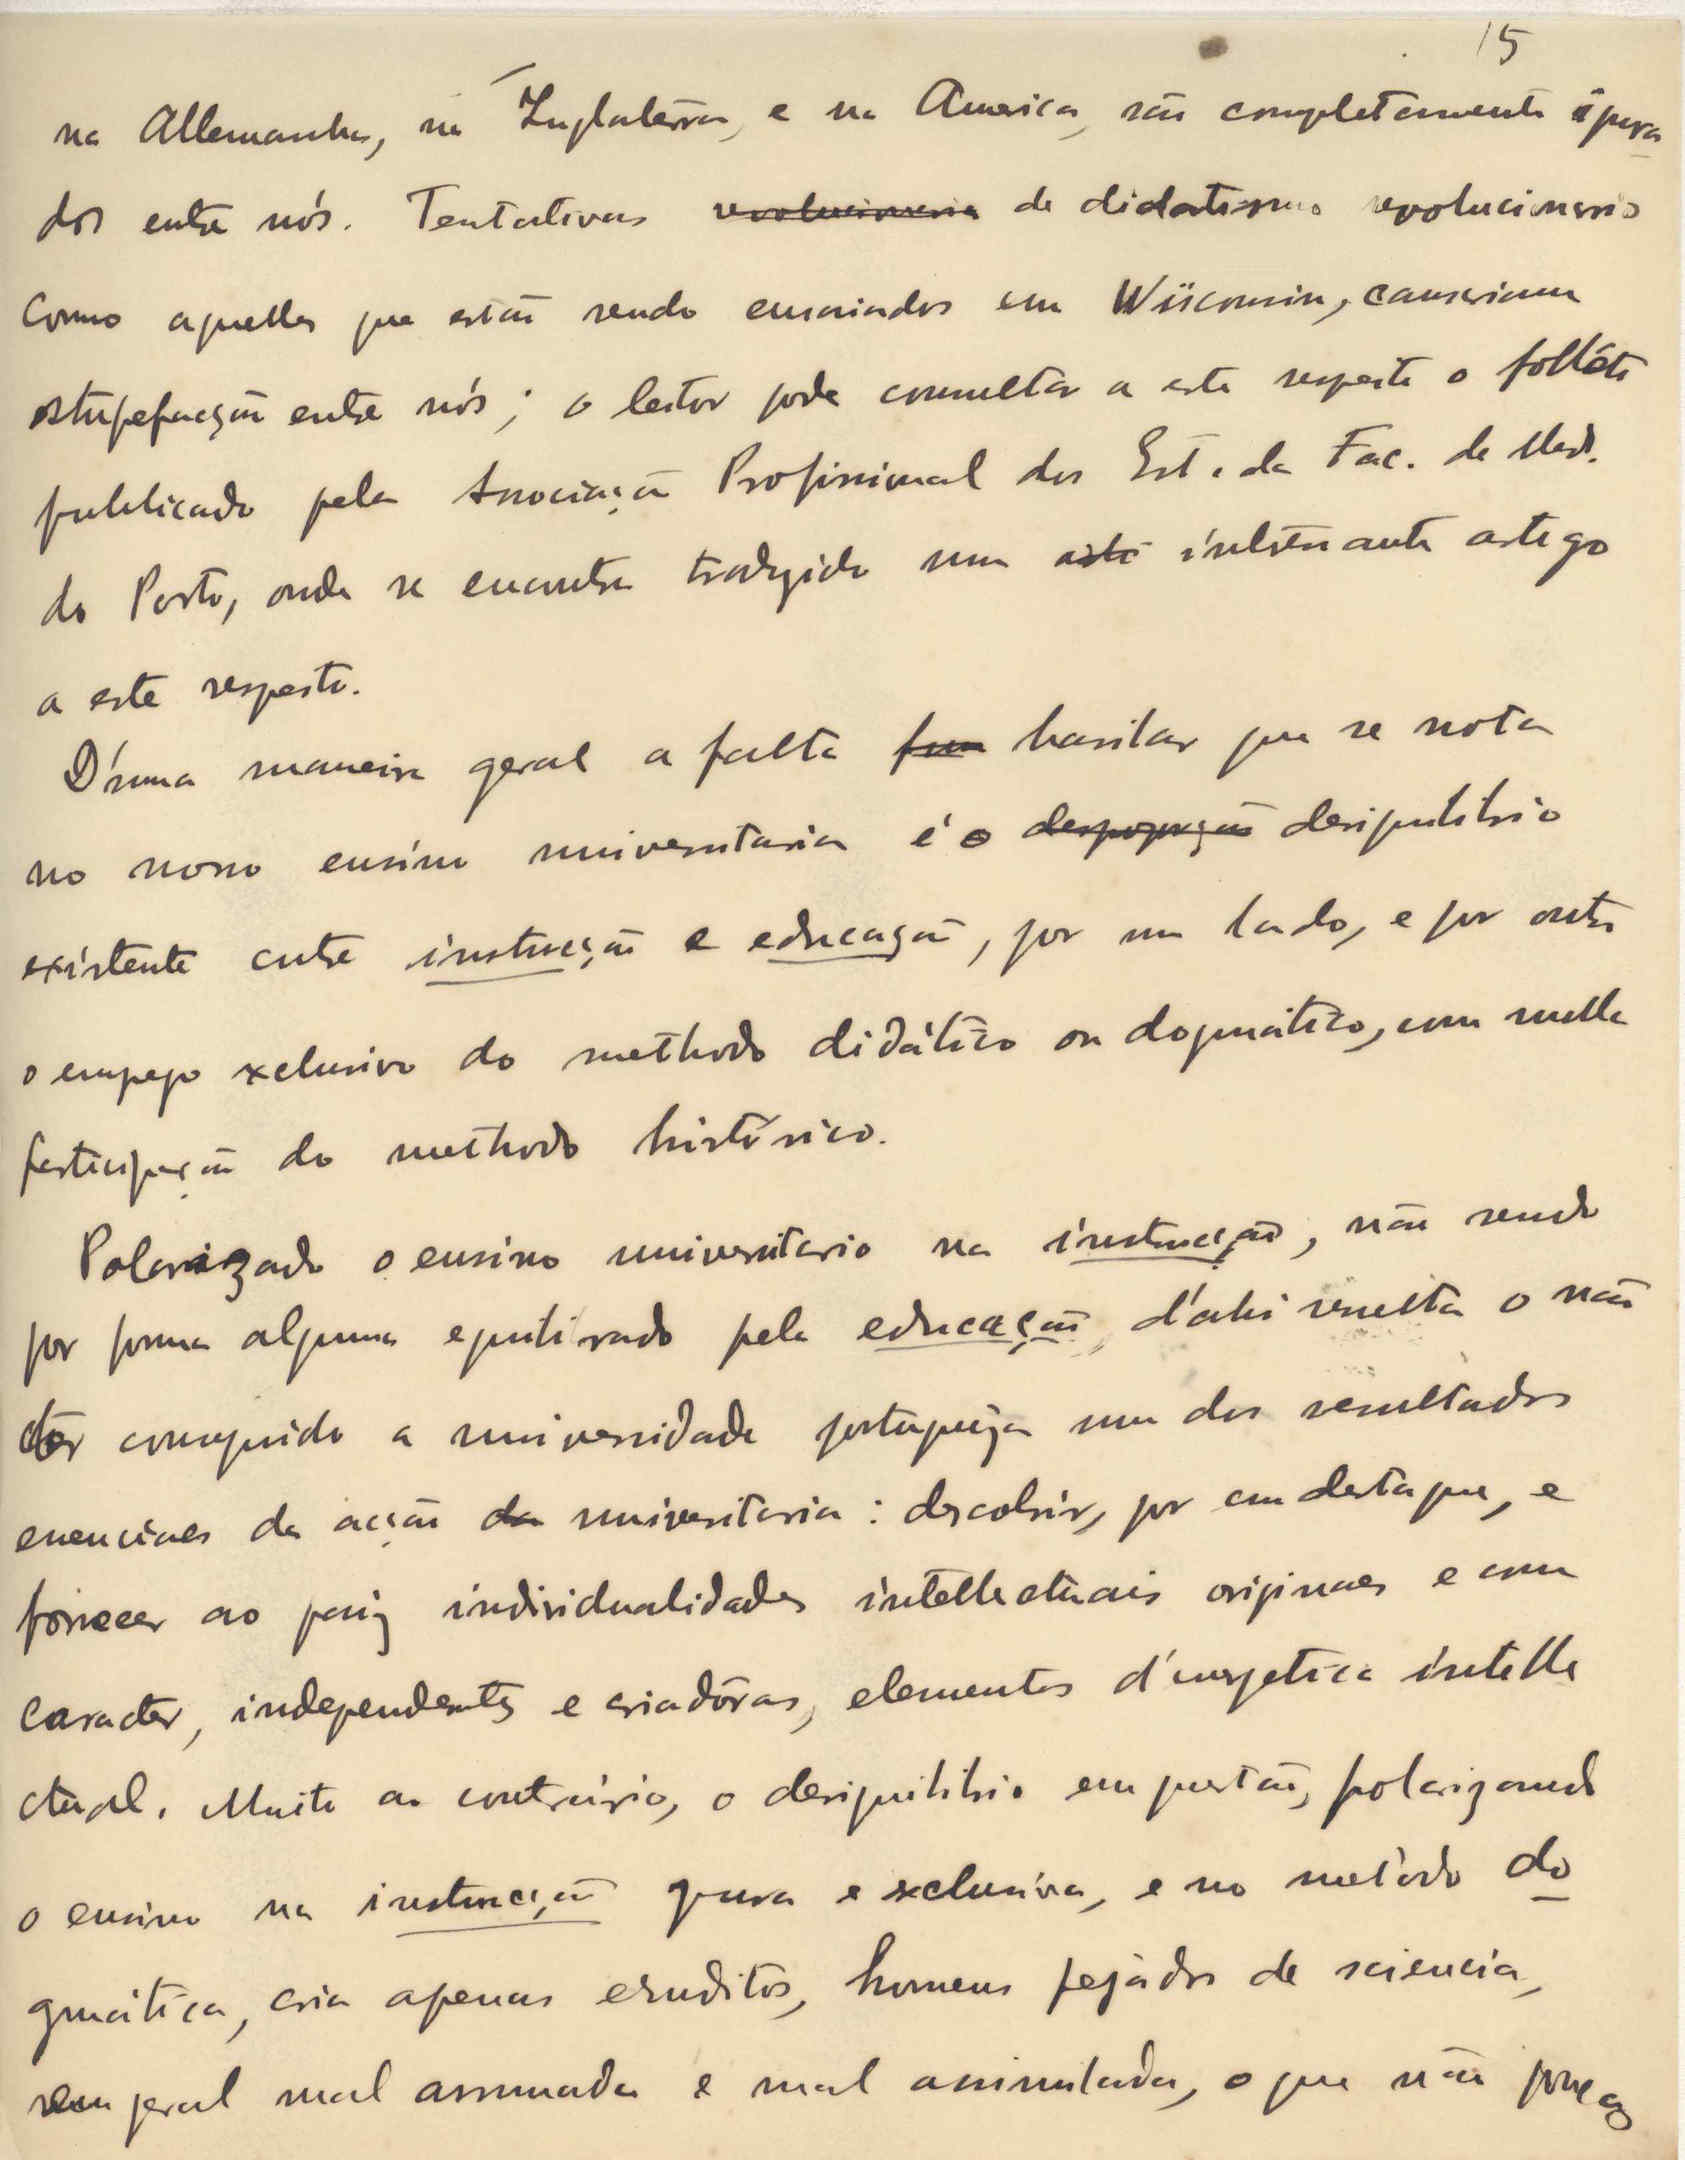 15
na Allemanha, na Inglaterra, e na America, são completamente ignora
dos entre nós. Tentativas revolucionaria de didatismo revolucionario
como aquelles que estão sendo ensaiados em Wiisconsin, causariam
estupefação entre nós; o leitor pode consultar a este respeito o folhêto
publicado pela Associação Profissional dos Est. da Fac. de Med.
do Porto, onde se encontra traduzido um interessante artigo
a este respeito.
D'uma maneira geral a falta fun basilar que se nota
no nosso ensino universitario é o desproporção desiquilibrio
existente entre instrucção e educação, por um lado, e por outro
o emprego exclusivo do methodo didático ou dogmático, com nulla
participação do methodo histórico.
Polarizado o ensino universitario na instrucção, não sendo
por forma alguma equilibrado pela educação, d'ahi resulta o não
ter conseguido a universidade portugueza um dos resultados
essenciaes da acção da universitaria: descobrir, pôr em destaque, e
fornecer ao paiz individualidades intellectuais originaes e com
caracter, independentes e criadôras, elementos d'energetica intelle
ctual. Muito ao contrário, o desiquilibrio em questão, polarizando
o ensino na instrucção pura e exclusiva, e no metodo do
gmática, cria apenas eruditos, homens pejádos de sciencia,
em geral mal arrumada e mal assimilada, o que não poucas